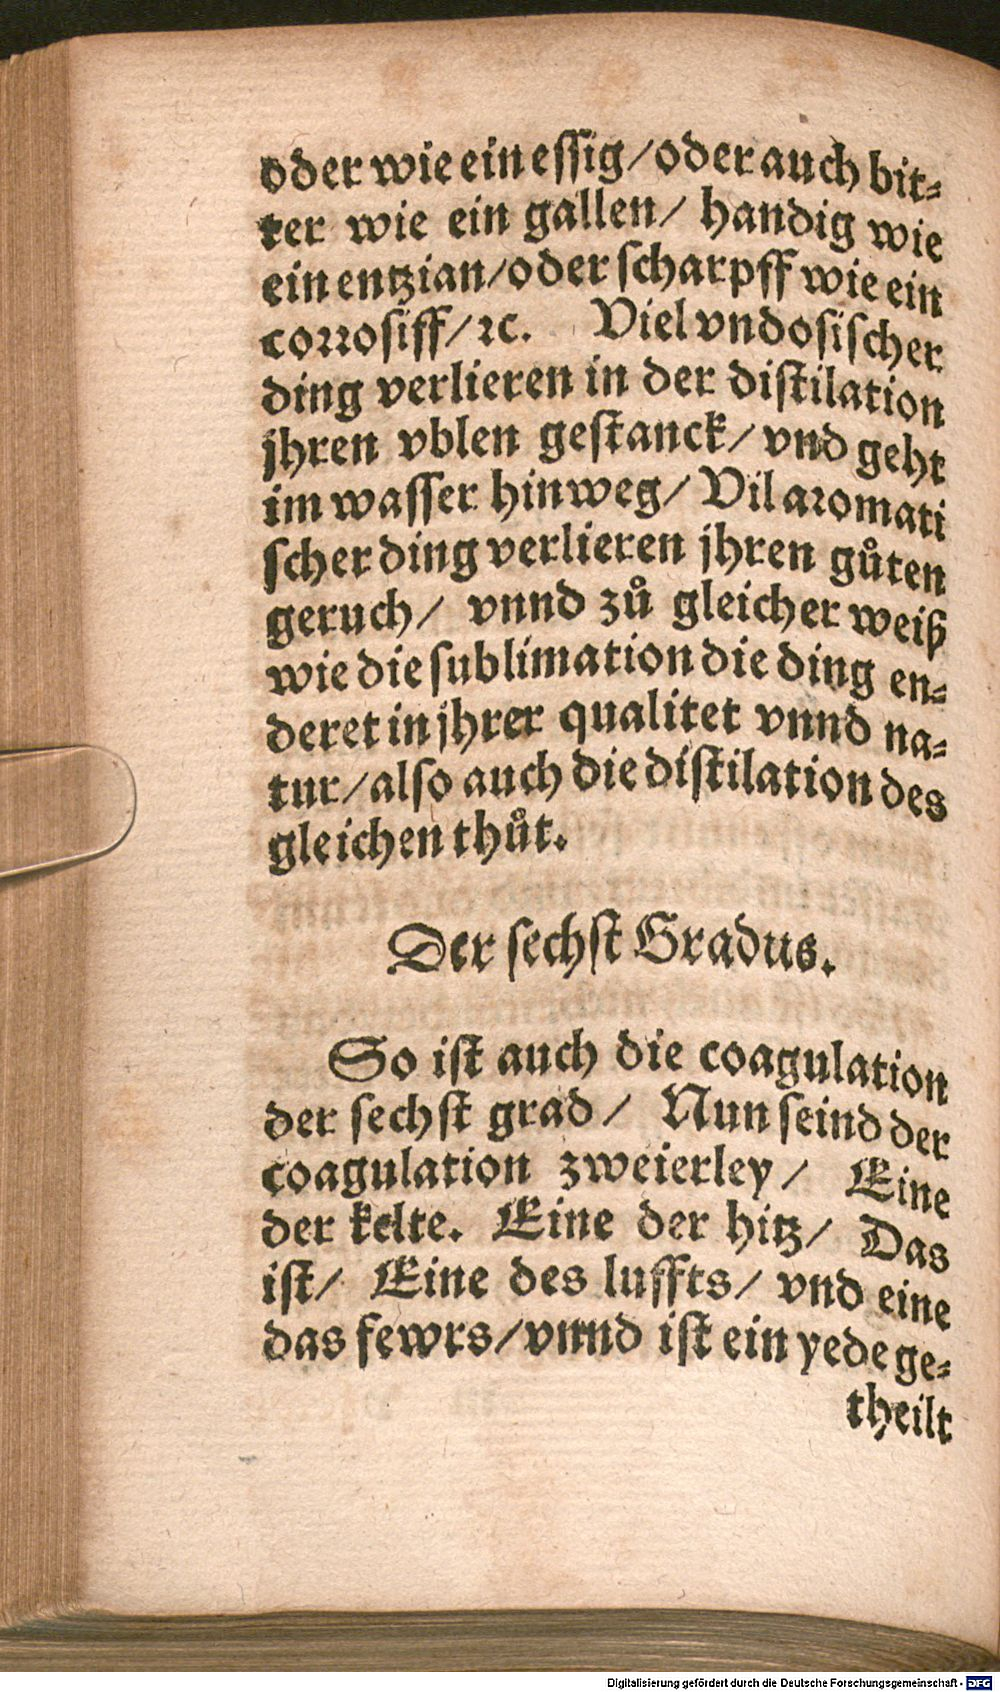 oder wie ein essig/ oder auch bit⸗
ter wie ein gallen/ handig wie
ein entzian/ oder scharpff wie ein
corrosiff/ ꝛc. Viel vndosischer
ding verlieren in der distilation
jhren vblen gestanck/ vnd geht
im wasser hinweg/ Vil aromati
scher ding verlieren jhren gůten
geruch/ vnnd zů gleicher weiß
wie die sublimation die ding en⸗
deret in jhrer qualitet vnnd na⸗
tur/ also auch die distilation des
gleichen thůt.
Der sechst Gradus.
So ist auch die coagulation
der sechst grad/ Nun seind der
coagulation zweierley/ Eine
der kelte. Eine der hitz/ Das
ist/ Eine des luffts/ vnd eine
das fewrs/ vnnd ist ein yede ge⸗
theilt
Digitalisierung gefördert durch die Deutsche Forschungsgemeinschaft - DFG